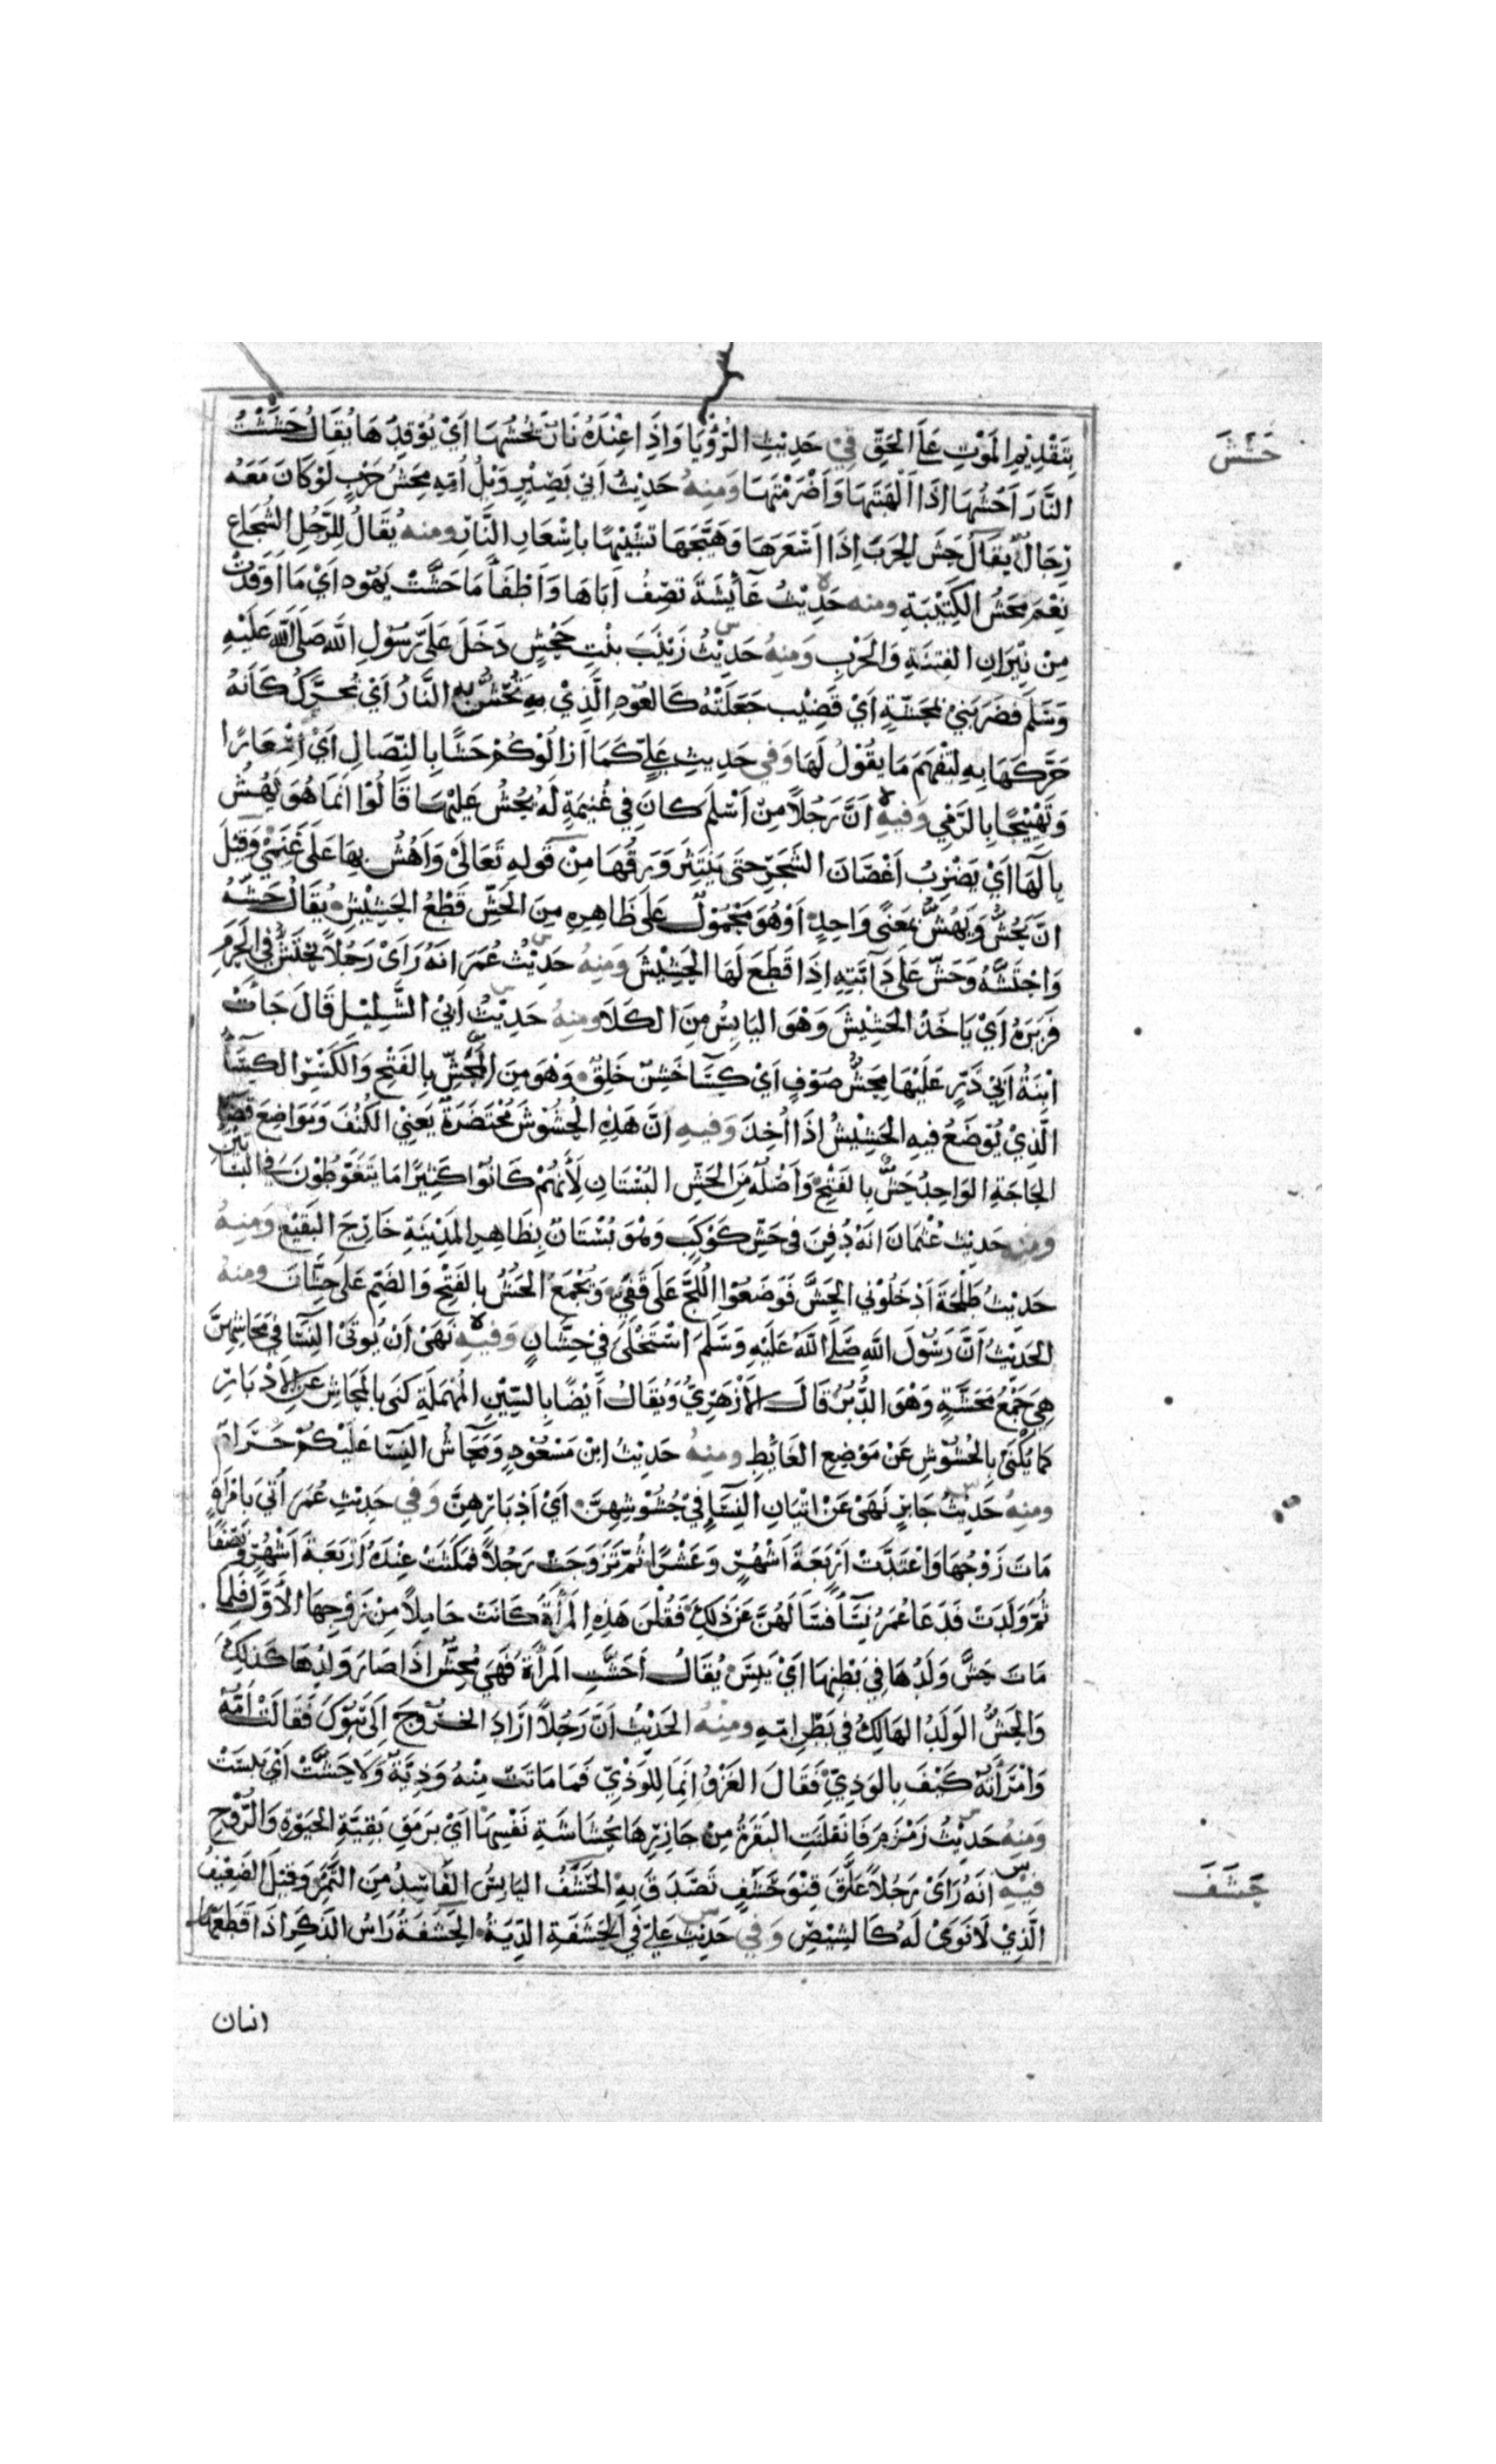 بِتَقْدِيْمِ المَوْتِ عَلَى الحَقِّ فِيْ حَدِيْثِ الرُّؤْيَا وَاِذَا عِنْدَهُ نَارٌ يَحُشُّهَا اَيْ يُوْقِدُهَا يُقَالُ حَشَشْتُ
حَشَشَ
النَّارَ اَحُشُّهَا اِذَا اَلْهَبْتَهَا وَاَضْرَمْتَهَا وَمِنْهُ حَدِيْثُ اَبِيْ بَصِيْرٍ وَيْلُ اُمِّهِ مِحَشُّ حَرْبٍ لَوْ كَانَ مَعَهُ
رِجَالٌ يُقَالُ حَشَّ الحَرْبَ اِذَا اَسْعَرَهَا وَهَيَّجَهَا تَشْبِيْهًا بِاِسْعَارِ النَّارِ وَمِنْهُ يُقَالُ لِلرَّجُلِ الشُّجَاعِ
نِعْمَ مِحَشُّ الكَتِيْبَةِ وَمِنْهُ حَدِيْثُ عَائِشَةَ تَصِفُ اَبَاهَا وَاَطْفَأَ مَا حَشَّتْ يَهُوْد اَيْ مَا اَوْقَدَتْ
مِنْ نِيْرَانِ الفِتْنَةِ وَالحَرْبِ وَمِنْهُ حَدِيْثُ زَيْنَبَ بِنْتِ جَحْشٍ دَخَلَ عَلَيَّ رَسُوْلُ اللّٰه صَلَّى اللّٰه عَلَيْهِ
وَسَلَّم فَضَرَبَنِيْ بِمِحَشَّةٍ اَيْ قَضِيْب جَعَلَتْهُ كَالعُوْدِ الَّذِيْ تُحَشُّ بِهِ النَّارُ اَيْ تُحَرَّكُ كَاَنَّهُ
حَرَّكَهَا بِهِ لِتَفْهَمَ مَا يَقُوْلُ لَهَا وَفِي حَدِيْثِ عَلِيٍّ كَمَا اَزَالُوْكُمْ حَشًّا بِالنِّصَالِ اَيْ اِسْعَارًا
وَتَهْيِيْجًا بِالرَّمْيِ وَفِيْهِ اَنَّ رَجُلاً مِنْ اَسْلَمَ كَانَ فِي غُنَيْمَةٍ لَهُ يَحُشُّ عَلَيْهَا قَالُوْا اِنَّمَا هُوَ يَهُشُّ
بِالهَا اَيْ يَضْرِبُ اَغْصَانَ الشَّجَرِ حَتَّى يَنْتَثِرَ وَرَقُهَا مِنْ قَولِهِ تَعَالَى وَاَهُشُّ بِهَا عَلَى غَنَمِيْ وَقِيْلَ
اِنَّ يَحُشُّ وَيَهُشُّ بِمَعْنًى وَاحِدٍ اَوْ هُوَ مَحْمُوْلٌ عَلَى ظَاهِرِهِ مِنَ الحَشِّ قَطْعُ الحَشِيْشِ يُقَالُ حَشَّهُ
وَاحْتَشَّهُ وَحَشَّ عَلَى دَابَّتِهِ اِذَا قَطَعَ لَهَا الحَشِيْشَ وَمِنْهُ حَدِيْثُ عُمَرَ اَنَّهُ رَاَىْ رَجُلاً يَحْتَشُّ فِي الحَرَمِ
فَزَبَرَهُ اَيْ يَاخُذُ الحَشِيْشَ وَهُوَ اليَابِسُ مِنَ الكَلَا وَمِنْهُ حَدِيْثُ اَبِيْ السَّلِيْلِ قَالَ جَاتْ
ابْنَةُ اَبِيْ ذَرٍّ عَلَيْهَا مِحَشُّ صُوْفٍ اَيْ كِسَا خَشِنٌ خَلِقٌ وَهُوَ مِنَ المِحَشِّ بِالفَتْحِ وَالكَسْرِ الكِسَا
الَّذِيْ يُوْضَعُ فِيْهِ الحَشِيْشُ اِذَا اُخِذَ وَفِيْهِ اِنَّ هَذِهِ الحُشُوْشَ مُحْتَضَرَةٌ يَعْنِيْ الكُنُفَ وَمَوَاضِعَ قَضَا
الحَاجَةِ الوَاحِدُ حَشٌّ بِالفَتْحِ وَاَصْلُهُ مِنَ الحَشِّ البُسْتَانِ لِاَنَّهُمْ كَانُوْا كَثِيْرًا مَا يَتَغَوَّطُوْنَ فِي البَسَاتِيْن
وَمِنْهُ حَدِيْث عُثْمَانَ اَنَّهُ دُفِنَ فِي حَشِّ كَوْكَبٍ وَهُوَ بُسْتَانٌ بِظَاهِرِ المَدِيْنَةِ خَارِجَ البَقِيْعِ وَمِنْهُ
حَدِيْثُ طَلْحَةَ اَدْخَلُوْنِي الحَشَّ فَوَضَعُوْا اللُّجَّ عَلَى قَفَيَّ وَيُجْمَعُ الحَشُّ بِالفَتْحِ وَالضَّمِّ عَلَى حِشَّانَ وَمِنْهُ
الحَدِيْثُ اَنَّ رَسُوْلَ اللّٰه صَلَّى اللّٰهُ عَلَيْهِ وَسَلَّمَ اسْتَخْلَى فِيْ حِشَّانٍ وَفِيْهِ نَهَىْ اَنْ يُوتَىْ النِّسَا فِيْ مَحَاشِّهِنَّ
هِيَ جَمْعُ مَحَشَّةٍ وَهُوَ الدُّبُرُ قَالَ الاَزْهَرِيُّ وَيُقَالُ اَيْضًا بِالسِّيْنِ المُهْمَلَةِ كَنَى بِالمَحَاشِّ عَنِ الاَدْبَارِ
كَمَا يُكْنَى بِالحُشُوْشِ عَنْ مَوْضِعِ الغَائِطِ وَمِنْهُ حَدِيْثُ ابْنِ مَسْعُوْدٍ وَمَحَاشُّ النِّسَا عَلَيْكُمْ حَرَامٌ
وَمِنْهُ حَدِيْثُ جَابِرٍ نَهَىْ عَنْ اِتْيَانِ النِّسَاءِ فِيْ حُشُوْشِهِنَّ اَيْ اَدْبَارِهِنَّ وَفِي حَدِيْثِ عُمَرَ اُتِيَ بِامْرَاَةٍ
مَاتَ زَوْجُهَا وَاعْتَدَّتْ اَرْبَعَةَ اَشْهُرٍ وَعَشْرًا ثُمَّ تَزَوَّجَتْ رَجُلاً فَمَكَثَتْ عِنْدَهُ اَرْبَعَةَ اَشْهُرٍ وَنِصْفًا
ثُمَّ وَلَدَتْ فَدَعَا عُمَرُ نِسَاً فَسَاَلَهُنَّ عَنْ ذَلِكَ فَقُلْنَ هَذِهِ المَرْأَةُ كَانَتْ حَامِلاً مِنْ زَوْجِهَا الاَوَّلِ فَلَمَّا
مَاتَ حَشَّ وَلَدُهَا فِيْ بَطْنِهَا اَيْ يَبِسَ يُقَالُ اَحَشَّتِ المَرْأَةُ فَهِيَ مُحِشٌّ اِذَا صَارَ وَلَدُهَا كَذَلِكَ
وَالحَشُّ الوَلَدُ الهَالِكُ فِيْ بَطْنِ اُمِّهِ وَمِنْهُ الحَدِيْثُ اَنَّ رَجُلاً اَرَادَ الخُرُوْجَ اِلَى تَبُوْكَ فَقَالَتْ اُمُّهُ
وَامْرَأَتُهُ كَيْفَ بِالوَدِيِّ فَقَالَ الغَزْوُ اَنْمَا لِلوَدِيِّ فَمَا مَاتَتْ مِنْهُ وَدِيَّةٌ وَلَا حَشَّتْ اَيْ يَبِسَتْ
وَمِنْهُ حَدِيْثُ زَمْزَمَ فَانْفَلَتَتِ البَقَرَةُ مِنْ جَازِرِهَا بِحُشَاشَةِ نَفْسِهَا اَيْ بِرَمَقِ بَقِيَّةِ الحَيٰوةِ وَالرُّوْحِ
فِيْهِ اَنَّهُ رَاَىْ رَجُلاً عَلَّقَ قِنْوَ حَشَفٍ تَصَدَّقَ بِهِ الحَشَفُ اليَابِسُ الفَاسِدُ مِنَ التَّمْرِ وَقِيْلَ الضَّعِيْفُ
حَشَفَ
الَّذِيْ لَا نَوَىْ لَهُ كَالشِّيْصِ وَفِيْ حَدِيْثِ عَلِيٍّ فِي الحَشَفَةِ الدِّيَةُ الحَشَفَةُ رَاسُ الذَّكَرِ اِذَا قَطَعَهَا
انسان